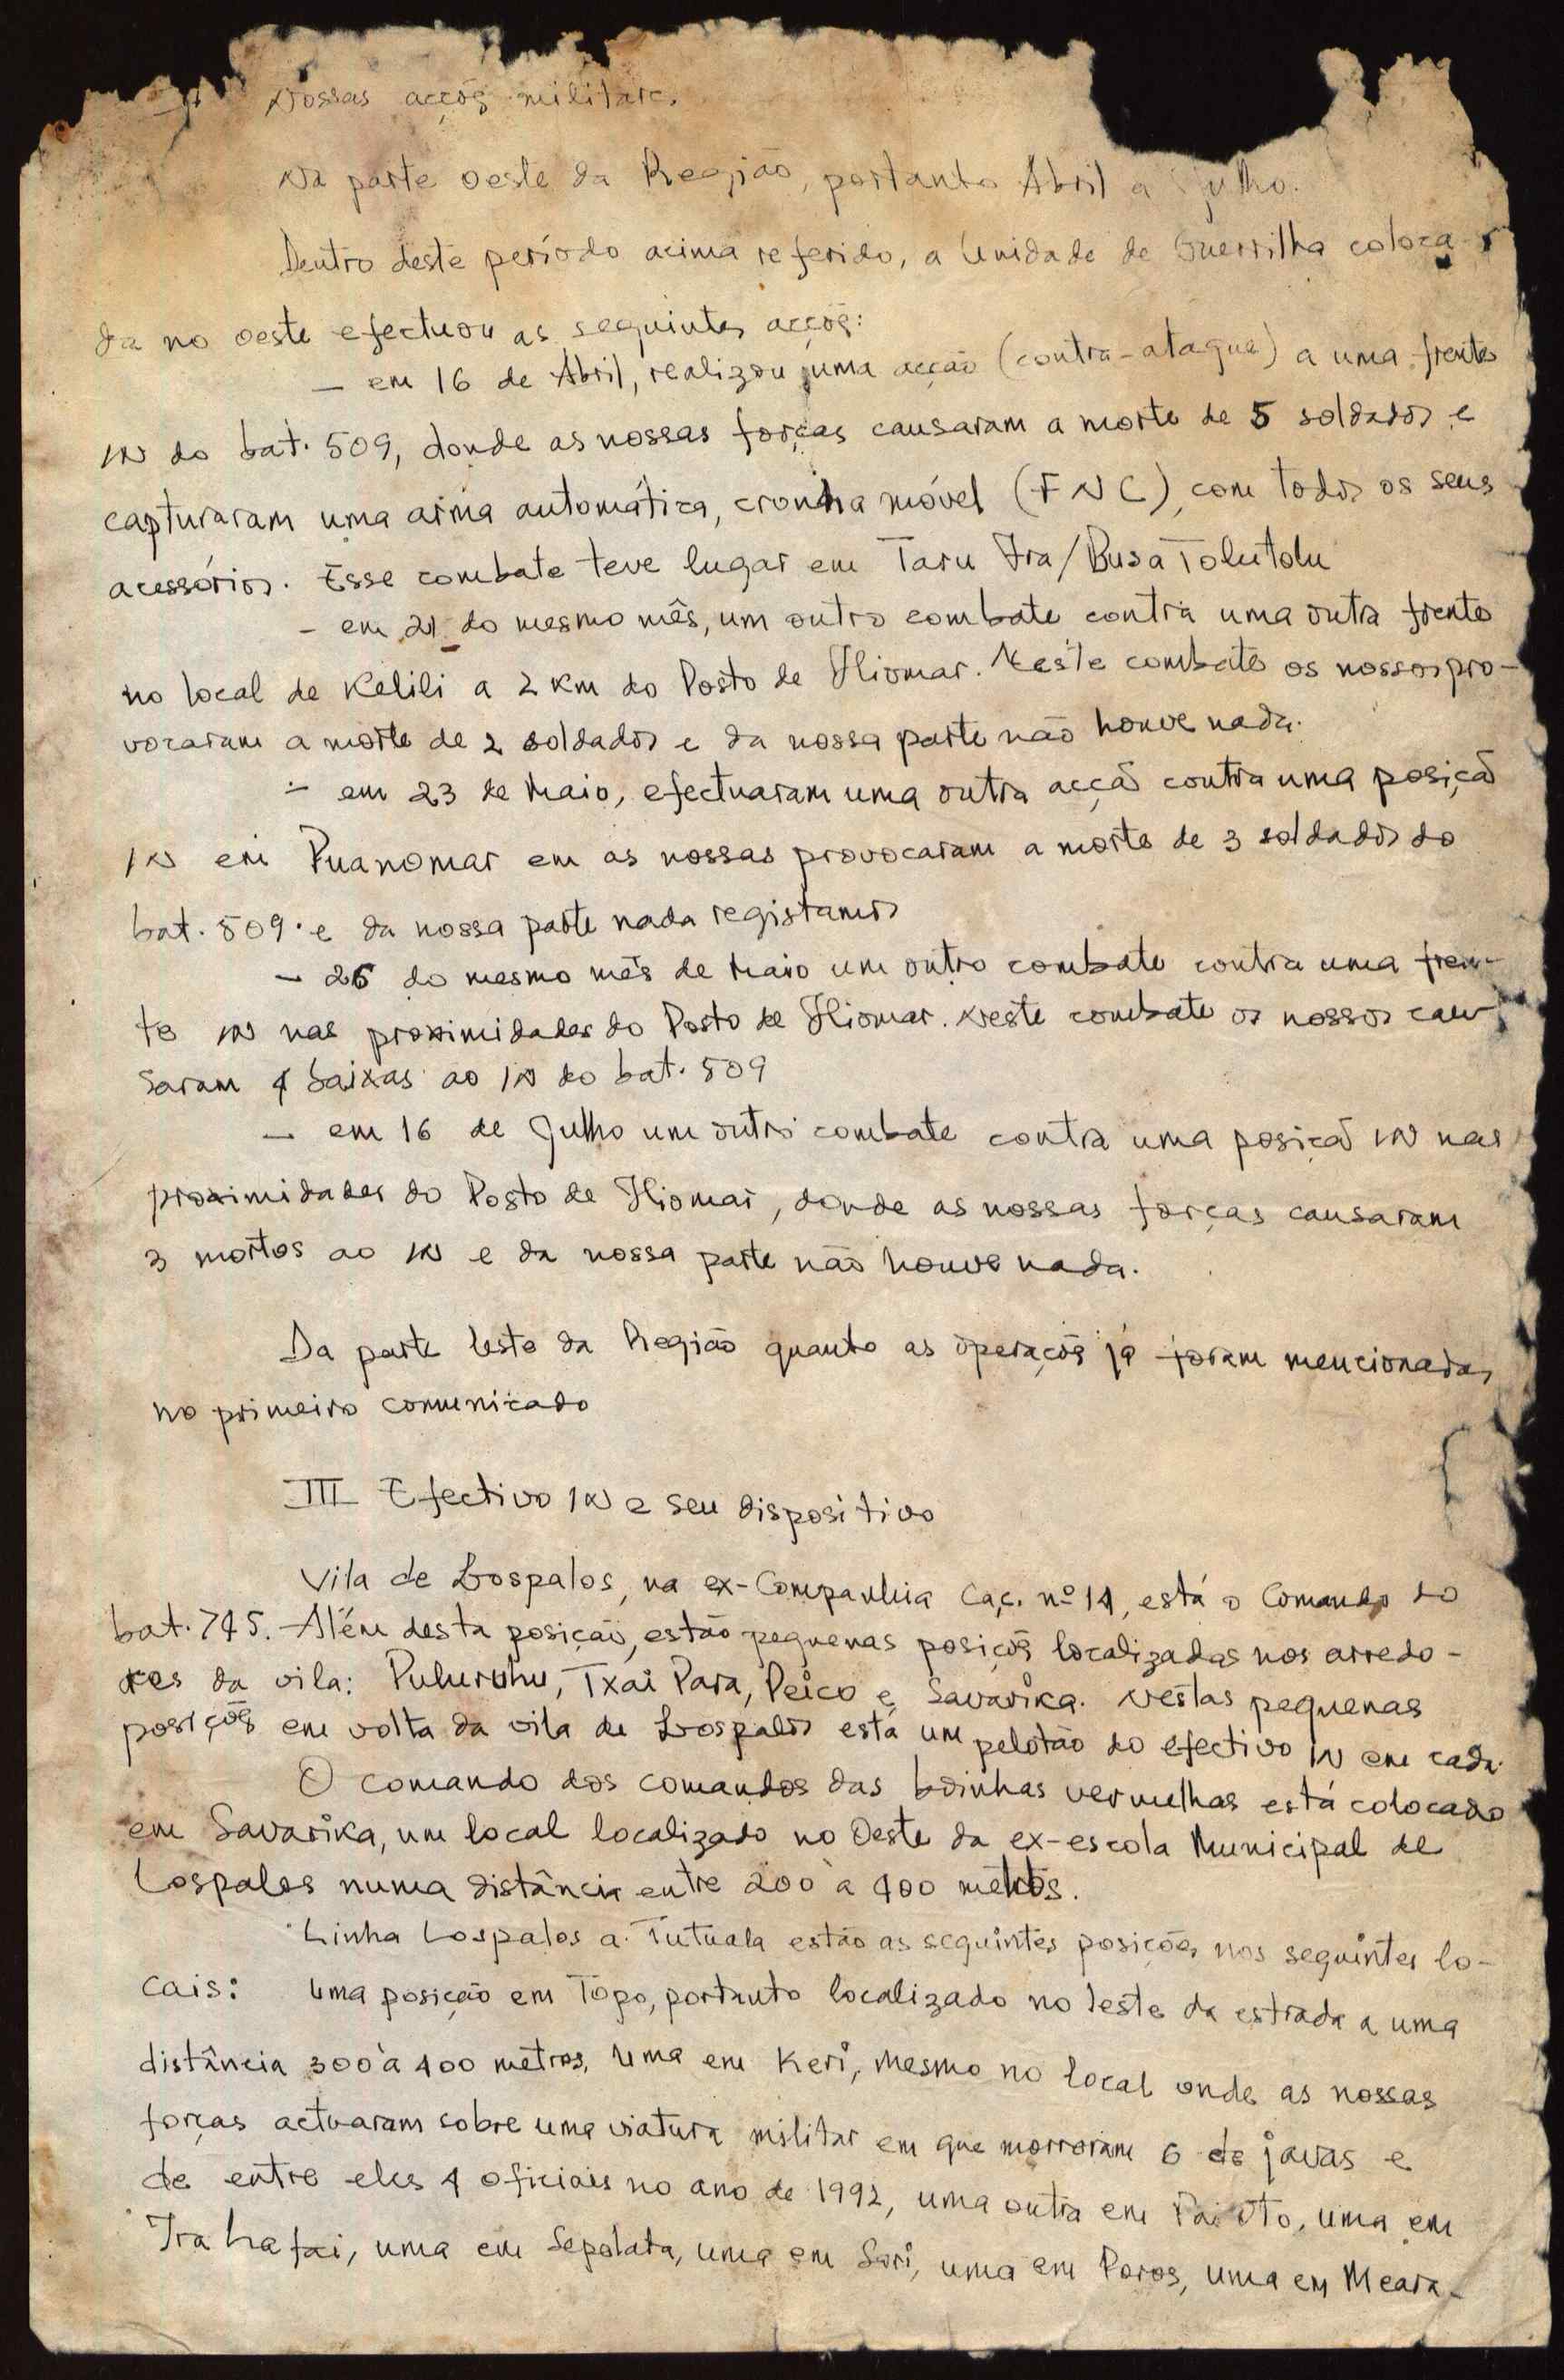 Nossas acções militares.
Na parte oeste da Região, portanto Abril a Julho.
Dentro deste período acima referido, a Unidade de Guerrilha coloca-
da no oeste efectuou as seguintes acções:
– em 16 de Abril, realizou uma acção (contra-ataque) a uma frente
IN do bat. 509, donde as nossas forças causaram a morte de 5 soldados e
capturaram uma arma automática, cronha móvel (FNC), com todos os seus
acessórios. Esse combate teve lugar em Taru Ira/Busa Tolutolu
– em 21 do mesmo mês, um outro combate contra uma outra frente
no local de Kelili a 2 Km do Posto de Iliomar. Neste combate os nossos pro-
vocaram a morte de 2 soldados e da nossa parte não houve nada.
– em 23 de Maio, efectuaram uma outra acção contra uma posição
IN em Puanomar em as nossas provocaram a morte de 3 soldados do
bat. 509. e da nossa parte nada registamos
– 26 do mesmo mês de Maio um outro combate contra uma fren-
te IN nas proximidades do Posto de Iliomar. Neste combate os nossos cau-
saram 4 baixas ao IN do bat. 509
– em 16 de Julho um outro combate contra uma posição IN nas
proximidades do Posto de Iliomar, donde as nossas forças causaram
3 mortos ao IN e da nossa parte não houve nada.
Da parte leste da Região quanto as operações já foram mencionadas
no primeiro comunicado
III Efectivo IN e seu dispositivo
Vila de Lospalos, na ex-Companhia Caç. nº 14, está o Comando do
bat. 745. Além desta posição, estão pequenas posições localizadas nos arredo-
res da vila: Puluruhu, Txai Para, Peico e Savarika. Nestas pequenas
posições em volta da vila de Lospalos está um pelotão do efectivo IN em cada.
O comando dos comandos das boinhas vermelhas está colocado
em Savarika, um local localizado no Oeste da ex-escola Municipal de
Lospalos numa distância entre 200 à 400 metros.
Linha Lospalos a Tutuala estão as seguintes posições nos seguintes lo-
cais: Uma posição em Topo, portanto localizado no leste da estrada a uma
distância 300 à 400 metros, uma em Keri, mesmo no local onde as nossas
forças actuaram sobre uma viatura militar em que morreram 6 de javas e
de entre eles 4 oficiais no ano de 1992, uma outra em Pai Oto, uma em
Ira Lafai, uma em Sepolata, uma em Sori, uma em Poros, uma em Meara-